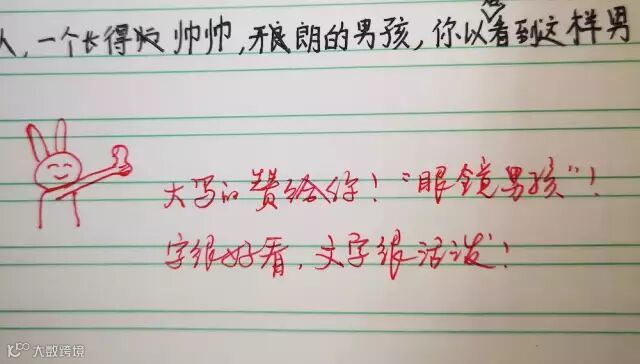 人,一个长得帅帅,开朗的男孩,你以看到这样男
大写的赞给你!“眼镜男孩”!
字很好看,文字很活泼!
大数跨境